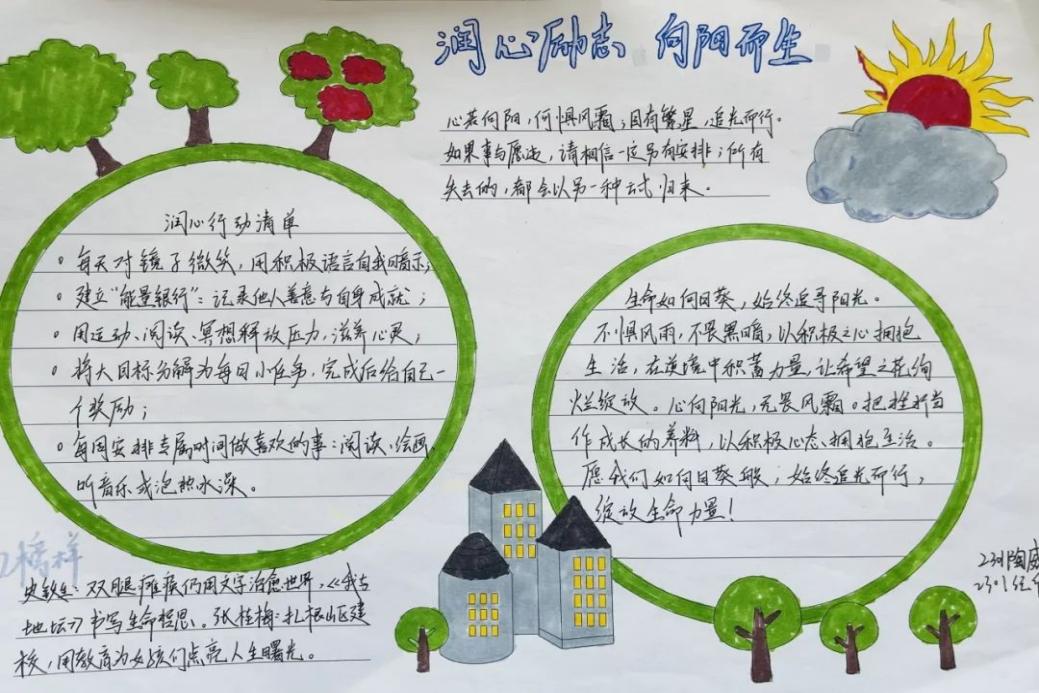 润心励志 向阳而生
心若向阳，何惧风霜；目有繁星，追光而行。
如果事与愿违，请相信一定另有安排；所有
失去的，都会以另一种方式归来。
润心行动清单
• 每天对镜子微笑，用积极语言自我暗示；
• 建立“能量银行”：记录他人善意与自身成就；
• 用运动、阅读、冥想释放压力，滋养心灵；
• 将大目标分解为每日小任务，完成后给自己一
个奖励；
• 每周安排专属时间做喜欢的事：阅读、绘画
听音乐或泡热水澡。
生命如向日葵，始终追寻阳光。
不惧风雨，不畏黑暗，以积极之心拥抱
生活，在逆境中积蓄力量，让希望之花绚
烂绽放。心向阳光，无畏风霜。把挫折当
作成长的养料，以积极心态拥抱生活。
愿我们如向日葵般；始终追光而行，
绽放生命力量！
榜样
史铁生：双腿瘫痪仍用文字治愈世界，《我与
地坛》书写生命哲思。张桂梅：扎根山区建
校，用教育为女孩们点亮人生曙光。
2301陶
2301任